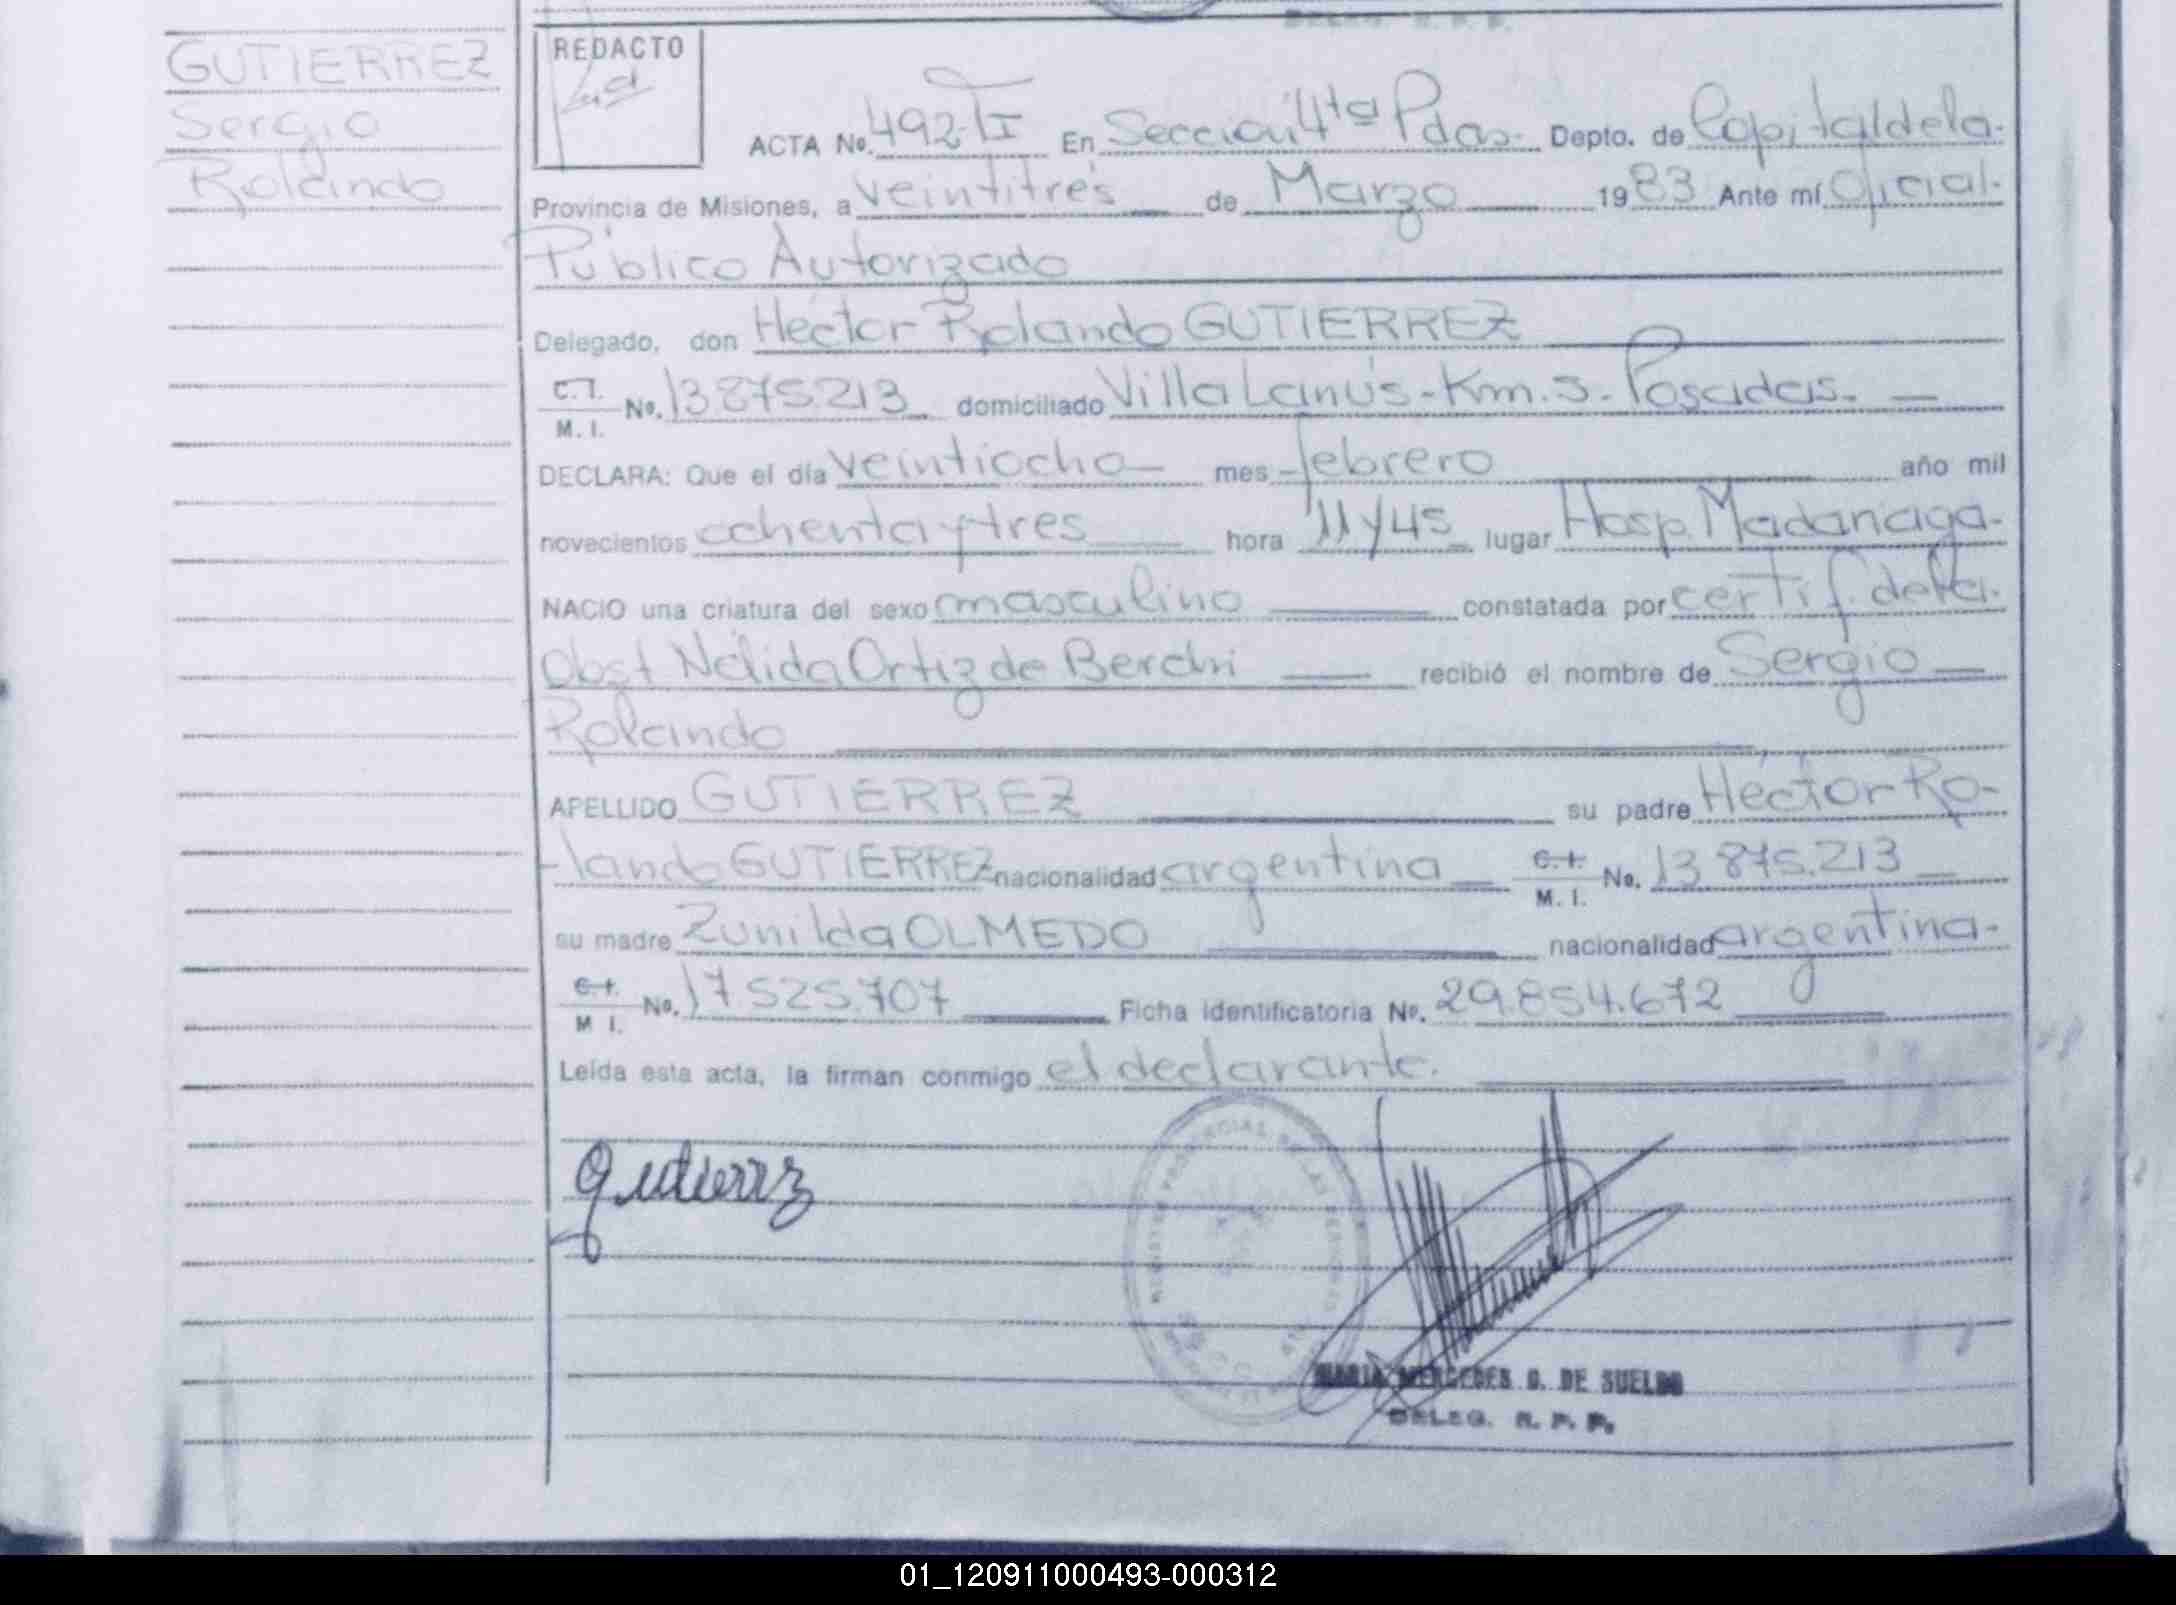 DELEG. R. P. P.
GUTIERREZ
Sergio
Rolando
REDACTO
ACTA No. 492-TI En Sección 4ta Pdas. Depto. de Capital de la
Provincia de Misiones, a veintitrés de Marzo 1983 Ante mí Oficial
Público Autorizado
Delegado, don Héctor Rolando GUTIERREZ
C.I. M. I. No. 13.875.213 domiciliado Villa Lanús - Km. 5 - Posadas.
DECLARA: Que el día veintiocho mes febrero año mil
novecientos ochenta y tres hora 11 y 45 lugar Hosp. Madariaga
NACIO una criatura del sexo masculino constatada por certif. de la
Obst Nélida Ortiz de Berchi recibió el nombre de Sergio
Rolando
APELLIDO GUTIERREZ su padre Héctor Ro-
-lando GUTIERREZ nacionalidad argentina C.I. M. I. No. 13.875.213
su madre Zunilda OLMEDO nacionalidad argentina
C.I. M I. No. 17.525.707 Ficha identificatoria No. 29.854.672
Leída esta acta, la firman conmigo el declarante.
Gutierrez
MARIA MERCEDES G. DE SUELDO
DELEG. R. P. P.
01_120911000493-000312